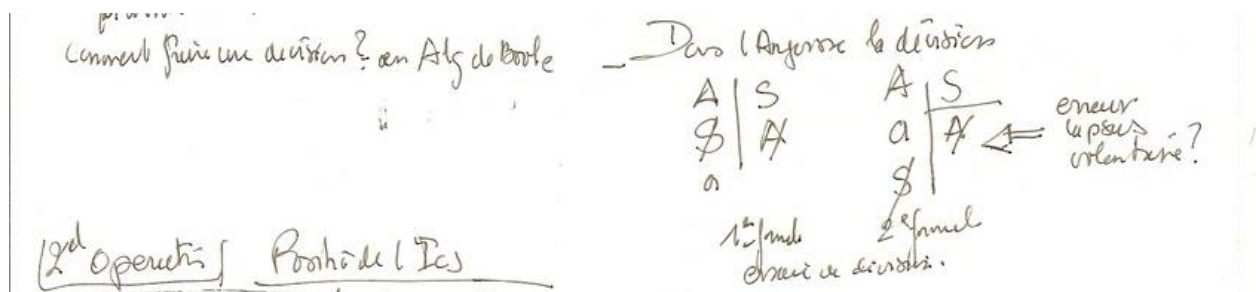 Comment faire une division ? en Alg de Boole
2nd Operation
Dans l'Angoisse la division
A | S
$ | Ⱥ
a
A | S
a | Ⱥ ⇐ erreur
lapsus
volontaire ?
$
1ère formule
2e formule
division.